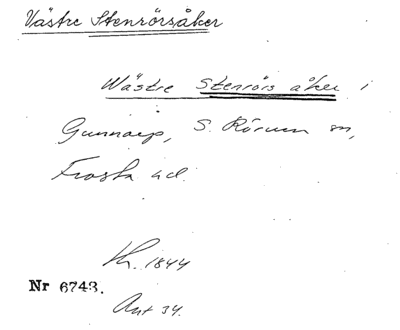 Västre Stenrörsåker
Wästre Stenrörs åker i
Gunnarp, S. Rörum sn,
Frosta hd.
Kh. 1844
Nr 6743.
Ant 34.